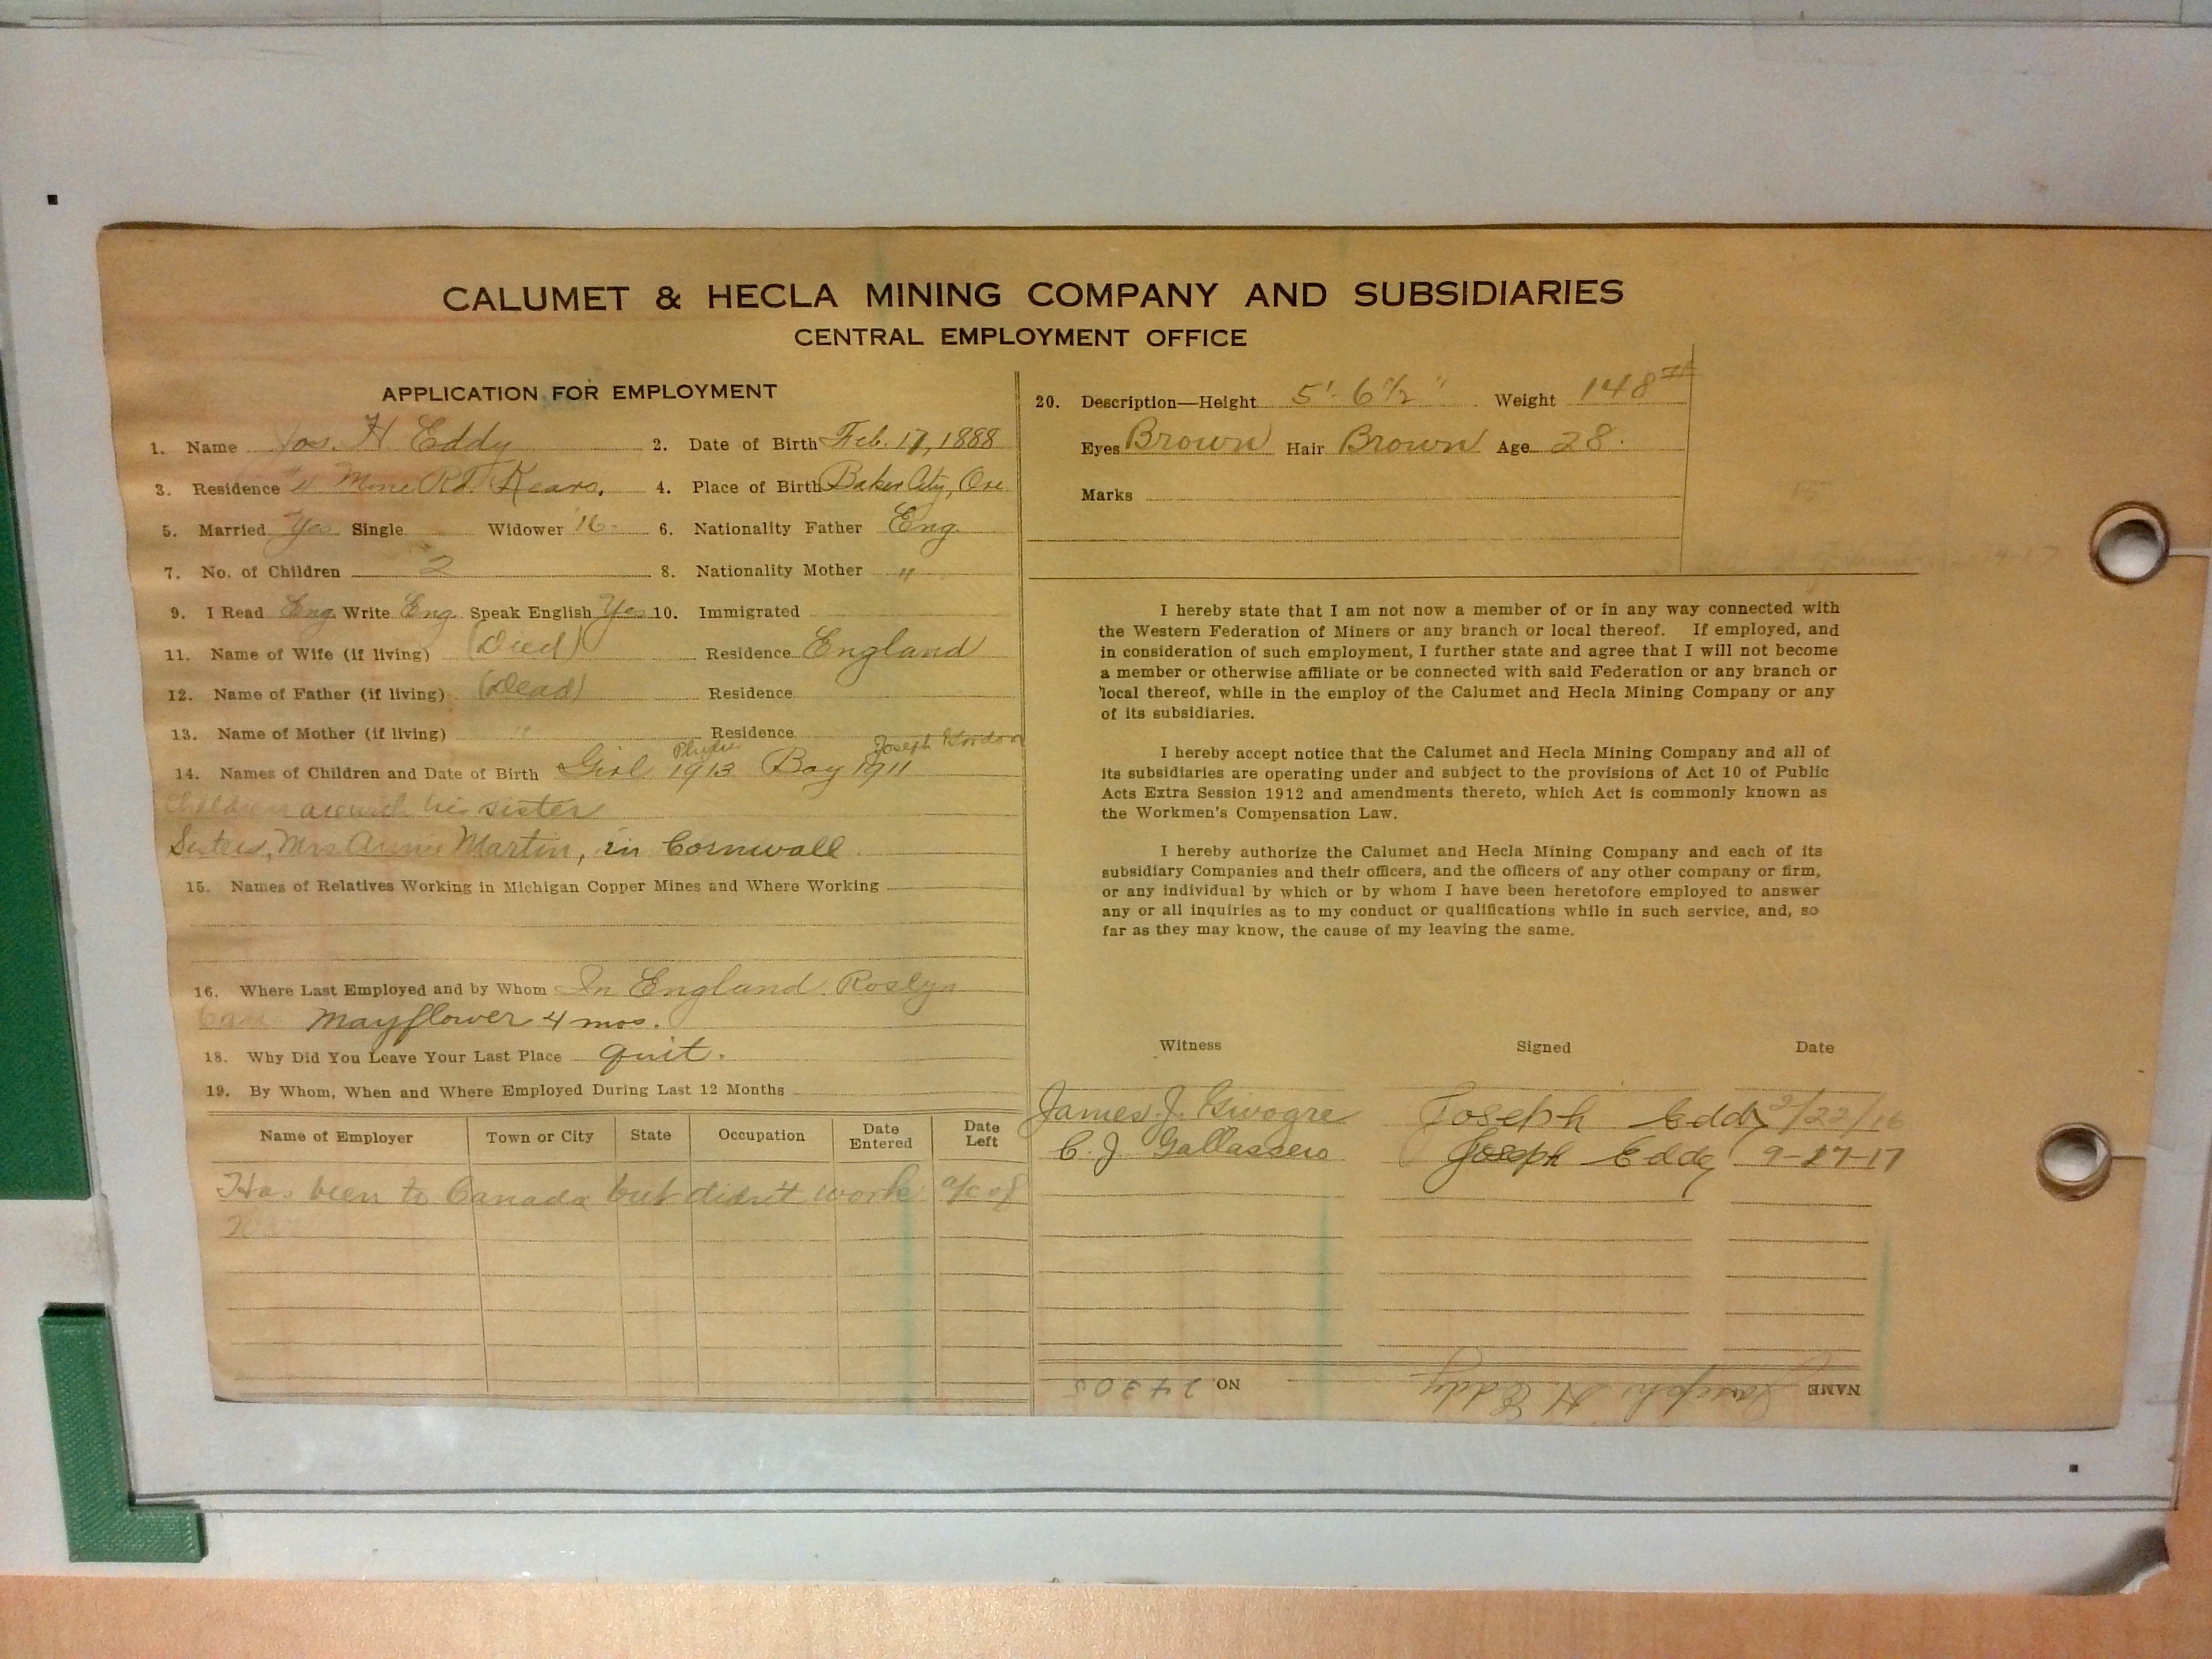 CALUMET & HECLA MINING COMPANY AND SUBSIDIARIES
CENTRAL EMPLOYMENT OFFICE
APPLICATION FOR EMPLOYMENT
1. Name Jos. H Eddy 2. Date of Birth Feb. 17, 1888
3. Residence Mine Rd. Kears. 4. Place of Birth Baker City, Ore
5. Married Yes Single Widower 6. Nationality Father Eng.
7. No. of Children 2 8. Nationality Mother "
9. I Read Eng. Write Eng. Speak English Yes 10. Immigrated
11. Name of Wife (if living) (Died) Residence England
12. Name of Father (if living) (Dead) Residence
13. Name of Mother (if living) " Residence
Joseph Gordon
14. Names of Children and Date of Birth Girl 1913 Boy 1911
Children are with his sister
Sister, Mrs Annie Martin, in Cornwall
15. Names of Relatives Working in Michigan Copper Mines and Where Working
16. Where Last Employed and by Whom In England Roslyn
Mayflower 4 mos.
18. Why Did You Leave Your Last Place quit.
19. By Whom, When and Where Employed During Last 12 Months
Name of Employer Town or City State Occupation Date Entered Date Left
Has been to Canada but didn't work a/c of
War
20. Description—Height 5' 6 1/2" Weight 148#
Eyes Brown Hair Brown Age 28.
Marks
I hereby state that I am not now a member of or in any way connected with
the Western Federation of Miners or any branch or local thereof. If employed, and
in consideration of such employment, I further state and agree that I will not become
a member or otherwise affiliate or be connected with said Federation or any branch or
local thereof, while in the employ of the Calumet and Hecla Mining Company or any
of its subsidiaries.
I hereby accept notice that the Calumet and Hecla Mining Company and all of
its subsidiaries are operating under and subject to the provisions of Act 10 of Public
Acts Extra Session 1912 and amendments thereto, which Act is commonly known as
the Workmen's Compensation Law.
I hereby authorize the Calumet and Hecla Mining Company and each of its
subsidiary Companies and their officers, and the officers of any other company or firm,
or any individual by which or by whom I have been heretofore employed to answer
any or all inquiries as to my conduct or qualifications while in such service, and, so
far as they may know, the cause of my leaving the same.
Witness Signed Date
James J. Givogre Joseph Eddy 2/22/16
C. J. Gallassero Joseph Eddy 9-27-17
NAME Joseph H. Eddy NO. 24305